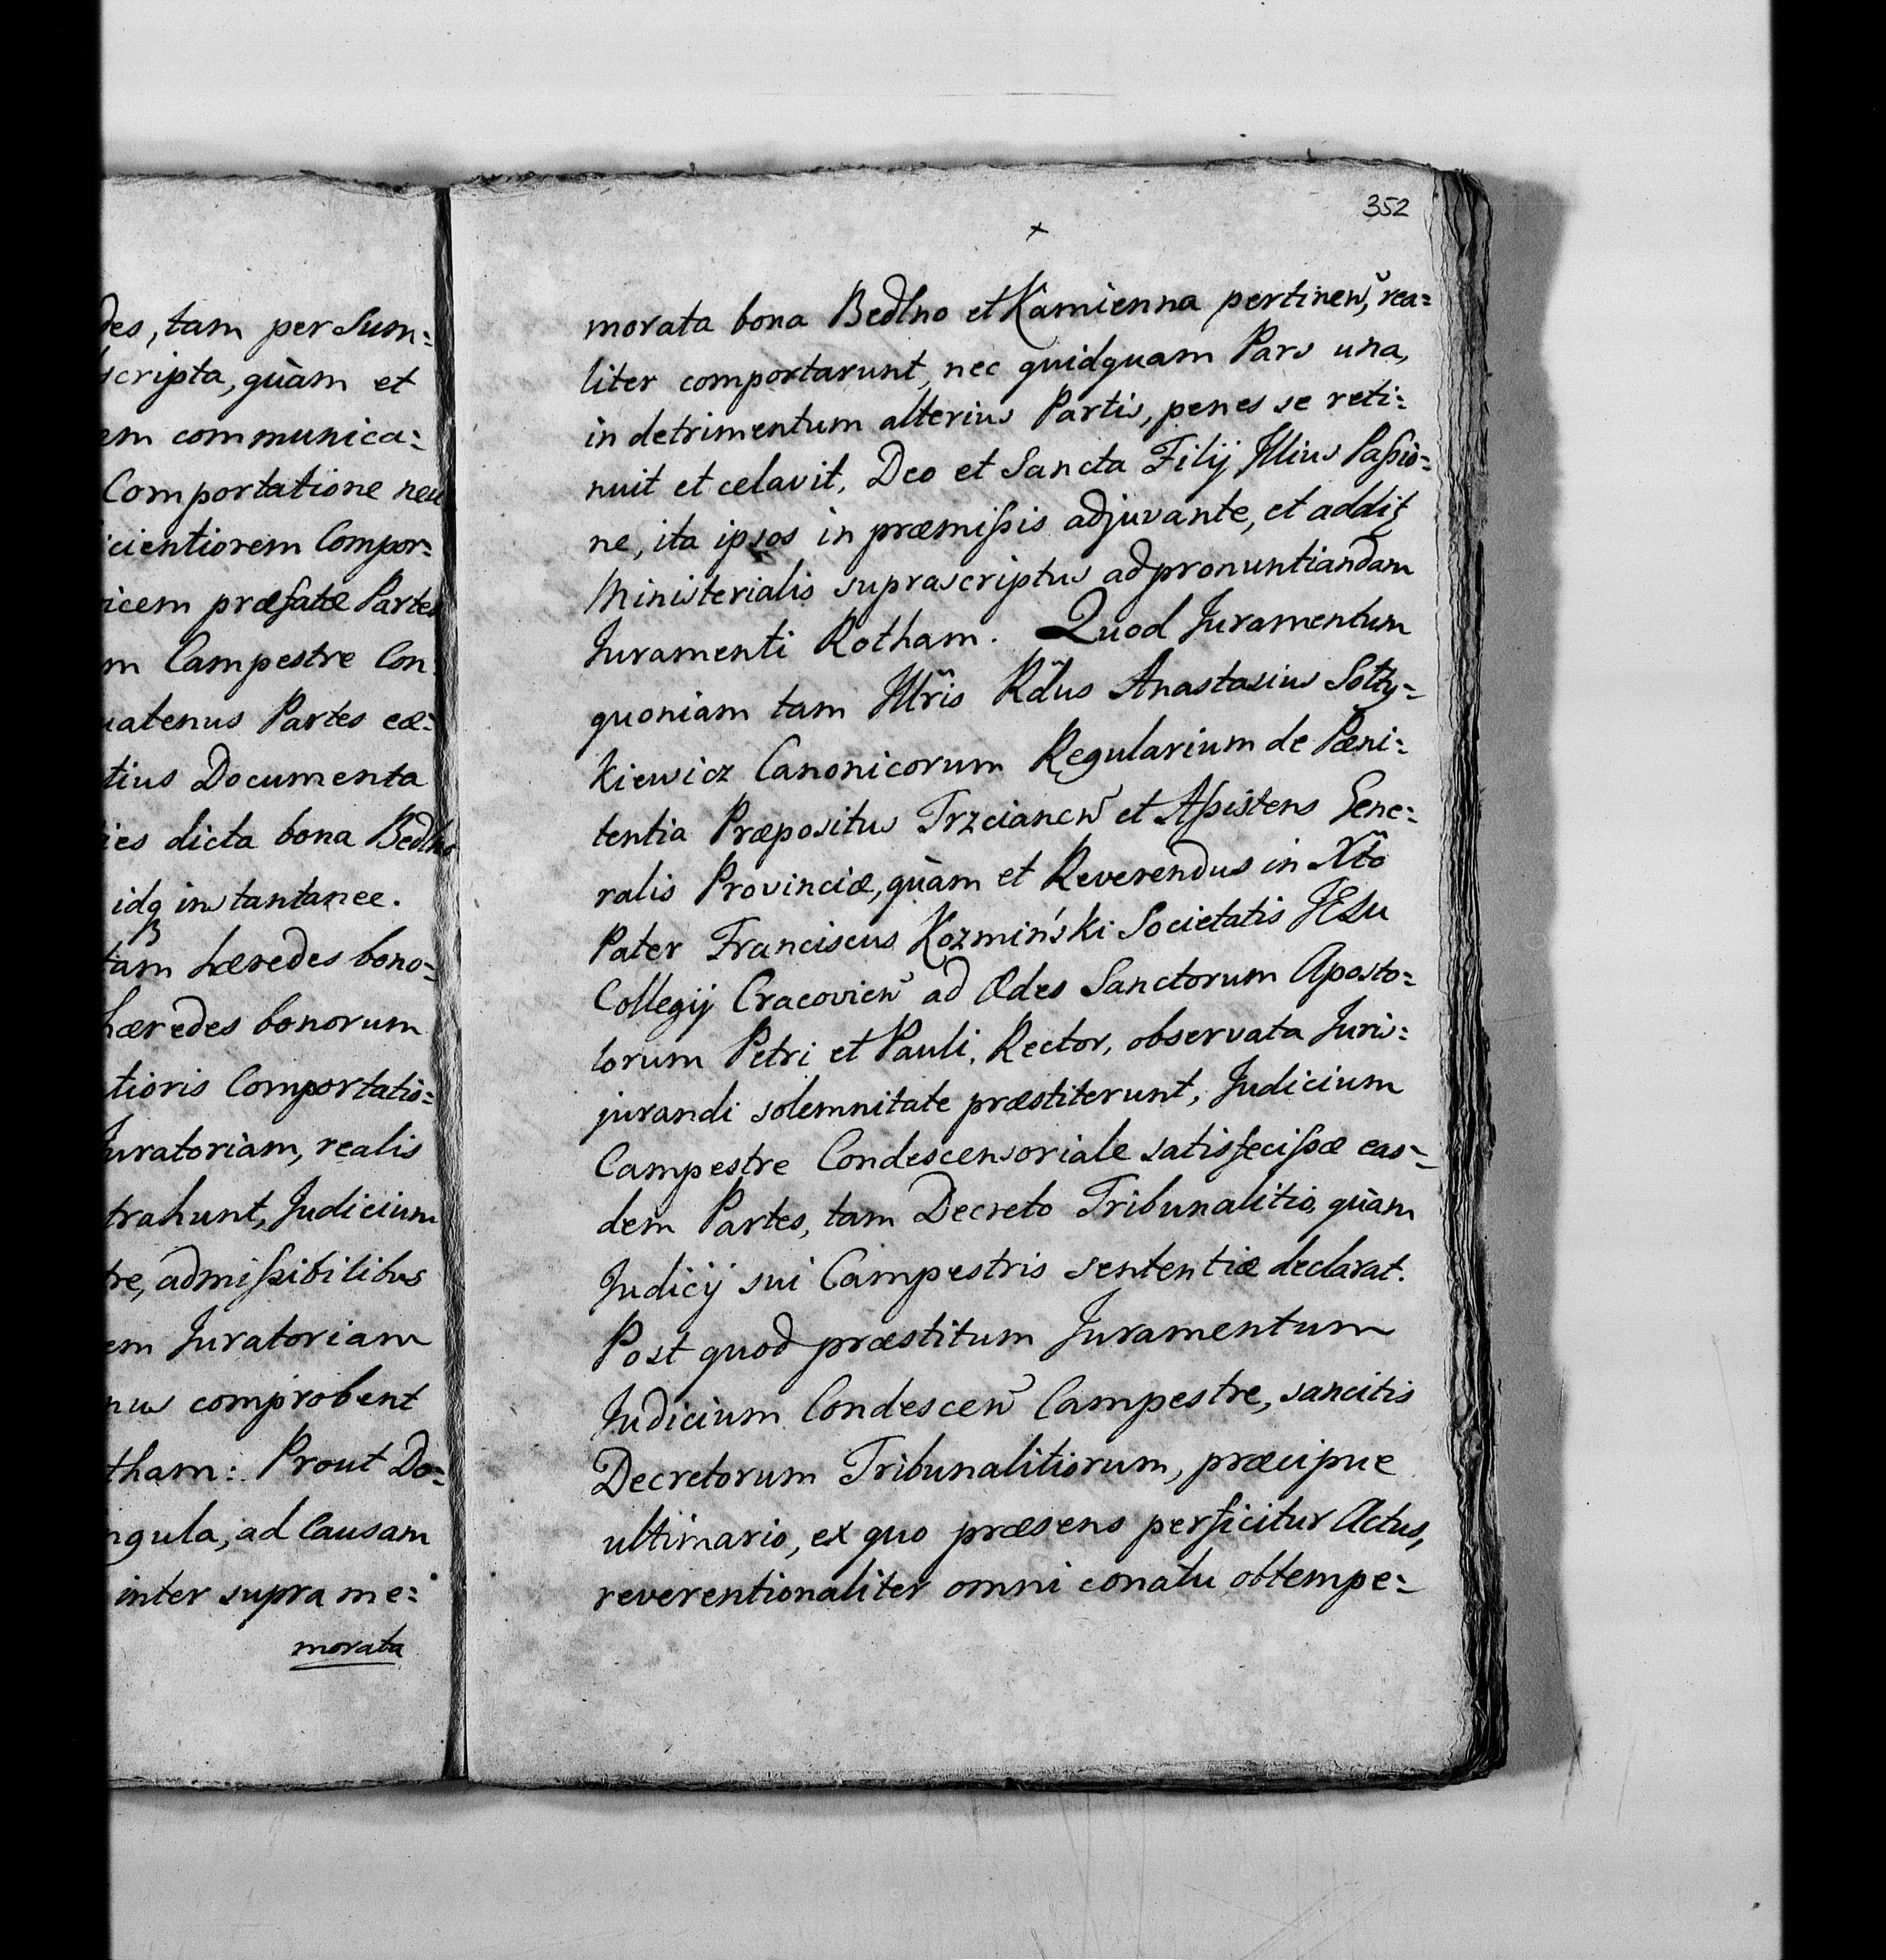 des, tam per Sum:
scripta, quàm et
em communica:
Comportatione neu
icientiorem Compor:
icem præfatæ Partes
m Campestre Con:
uatenus Partes eæ:
tius Documenta
ies dicta bona Bedlno
idq instantanee.
tam hæredes bono:
hæredes bonorum
tioris Comportatio:
Juratoriam, realis
trahunt, Judicium
re, admißibilibus
em Juratoriam
nus comprobent
tham: Prout Do:
ngula, ad Causam
inter supra me:
morata
352
morata bona Bedlno et Kamienna pertinen̄, rea:
liter comportarunt, nec quidquam Pars una,
in detrimentum alterius Partis, penes se reti:
nuit et celavit, Deo et Sancta Filij Illius Paßio:
ne, ita ipsos in præmißis adjuvante, et addit
Ministerialis suprascriptus ad pronuntiandam
Juramenti Rotham. Quod Juramentum
quoniam tam Illr̃is Rd̃us Anastasius Sołty:
kiewicz Canonicorum Regularium de Pæni:
tentia Præpositus Trzciancen̄ et Aßistens Gene:
ralis Provinciæ, quàm et Reverendus in Xt̃o
Pater Franciscus Kozmiński Societatis JESu
Collegij Cracovien̄ ad Ædes Sanctorum Aposto:
lorum Petri et Pauli, Rector, observata Juris:
jurandi solemnitate præstiterunt, Judicium
Campestre Condescensoriale satisfecißæ eas:
dem Partes, tam Decreto Tribunalitio, quàm
Judicij sui Campestris sententiæ declarat.
Post quod præstitum Juramentum
Judicium Condescen̄ Campestre, sancitis
Decretorum Tribunalitiorum, præcipue
ultimario, ex quo præsens perficitur Actus,
reverentionaliter omni conatu obtempe: